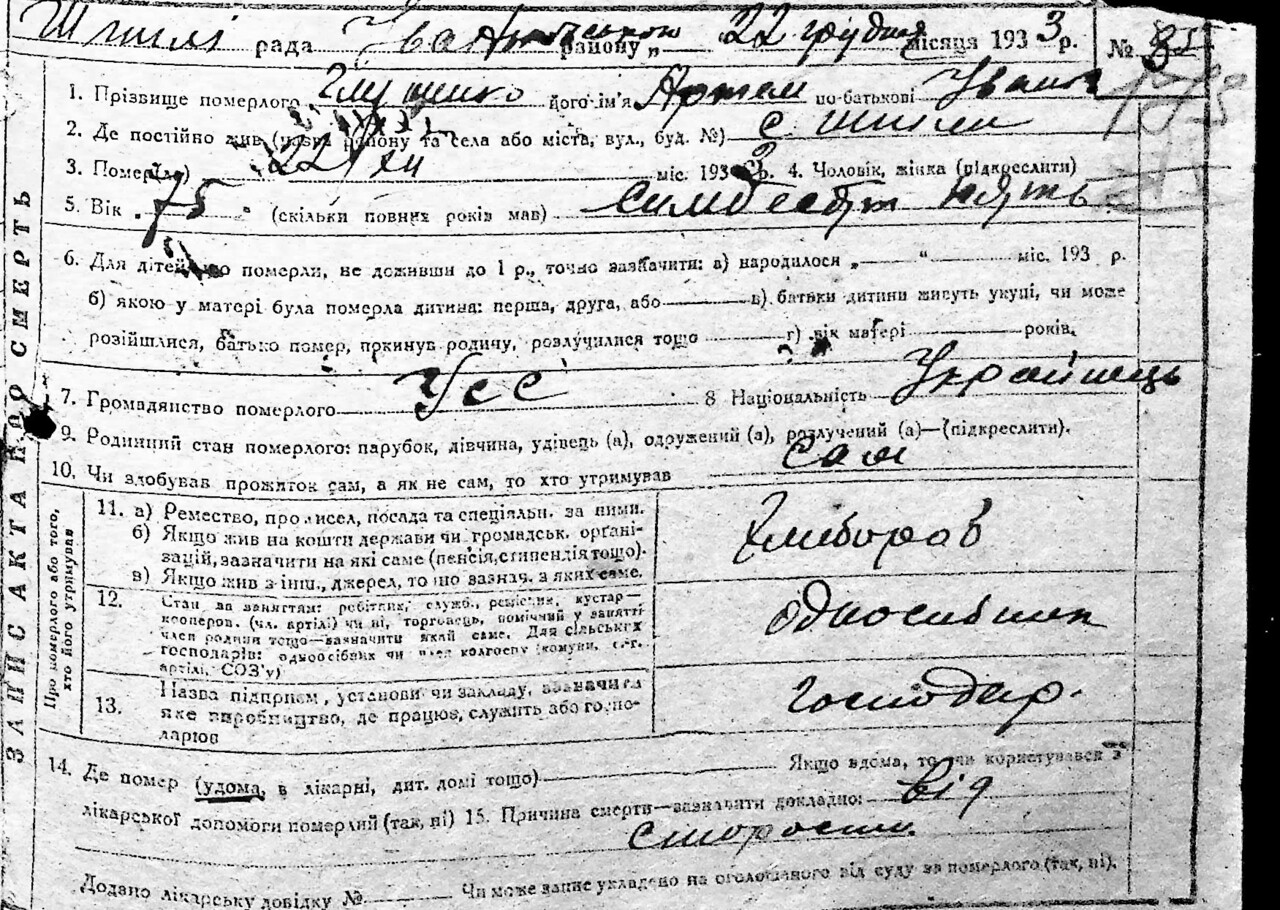 Шпилі рада Іванківського району „— 22 грудня місяця 1933 р. №
1. Прізвище померлого Глушенко його ім'я Артем по-батькові Іванов
2. Де постійно жив (назва району та села або міста, вул., буд. №) с Шпили
3. Помер(ла) 22/XII міс. 1933 р. 4. Чоловік, жінка (підкреслити)
5. Вік „75" (скільки повних років мав) симдесят пять
6. Для дітей, що померли, не доживши до 1 р., точно зазначити: а) народилося „—— “—— міс. 193 р.
б) якою у матері була померла дитина: перша, друга, або —— в) батьки дитини живуть укупі, чи може
розійшлися, батько помер, покинув родичу, розлучилися тощо —— г) вік матері —— років.
7. Громадянство померлого — Усс — 8 Національність — Украйнець
9. Родинний стан померлого: парубок, дівчина, удівець (а), одружений (а), розлучений (а)—(підкреслити).
10. Чи здобував прожиток сам, а як не сам, то хто утримував сам
ЗАПИС АКТА ПРО СМЕРТЬ
Про померлого або того, хто його утримував
11. а) Ремество, промисел, посада та спеціяльн. за ними. Хлибороб
б) Якщо жив на кошти держави чи громадськ. орґані-
зацій, зазначити на які саме (пенсія, стипендія тощо).
в) Якщо жив з інш., джерел, то що зазнач. з яких саме.
12. Стан за заняттям: робітник, служб., ремісник, кустар— односибник
кооперов. (чл. артілі) чи ні, торговець, помічний у занятті
член родини тощо—зазначити який саме. Для сільських
господарів: одноосібних чи член колгоспу (комуни, с.-г.
артілі, СОЗ'у)
13. Назва підприєм., установи чи закладу, зазначити господар.
яке виробництво, де працює, служить або госпо-
дарює
14. Де помер (удома, в лікарні, дит. домі тощо) —— Якщо вдома, то чи користувався з
лікарської допомоги померлий (так, ні) 15. Причина смерти—зазначити докладно: — від
старости.
Додано лікарську довідку №. —— Чи може запис укладено на оголошеного від суду за померлого (так, ні).